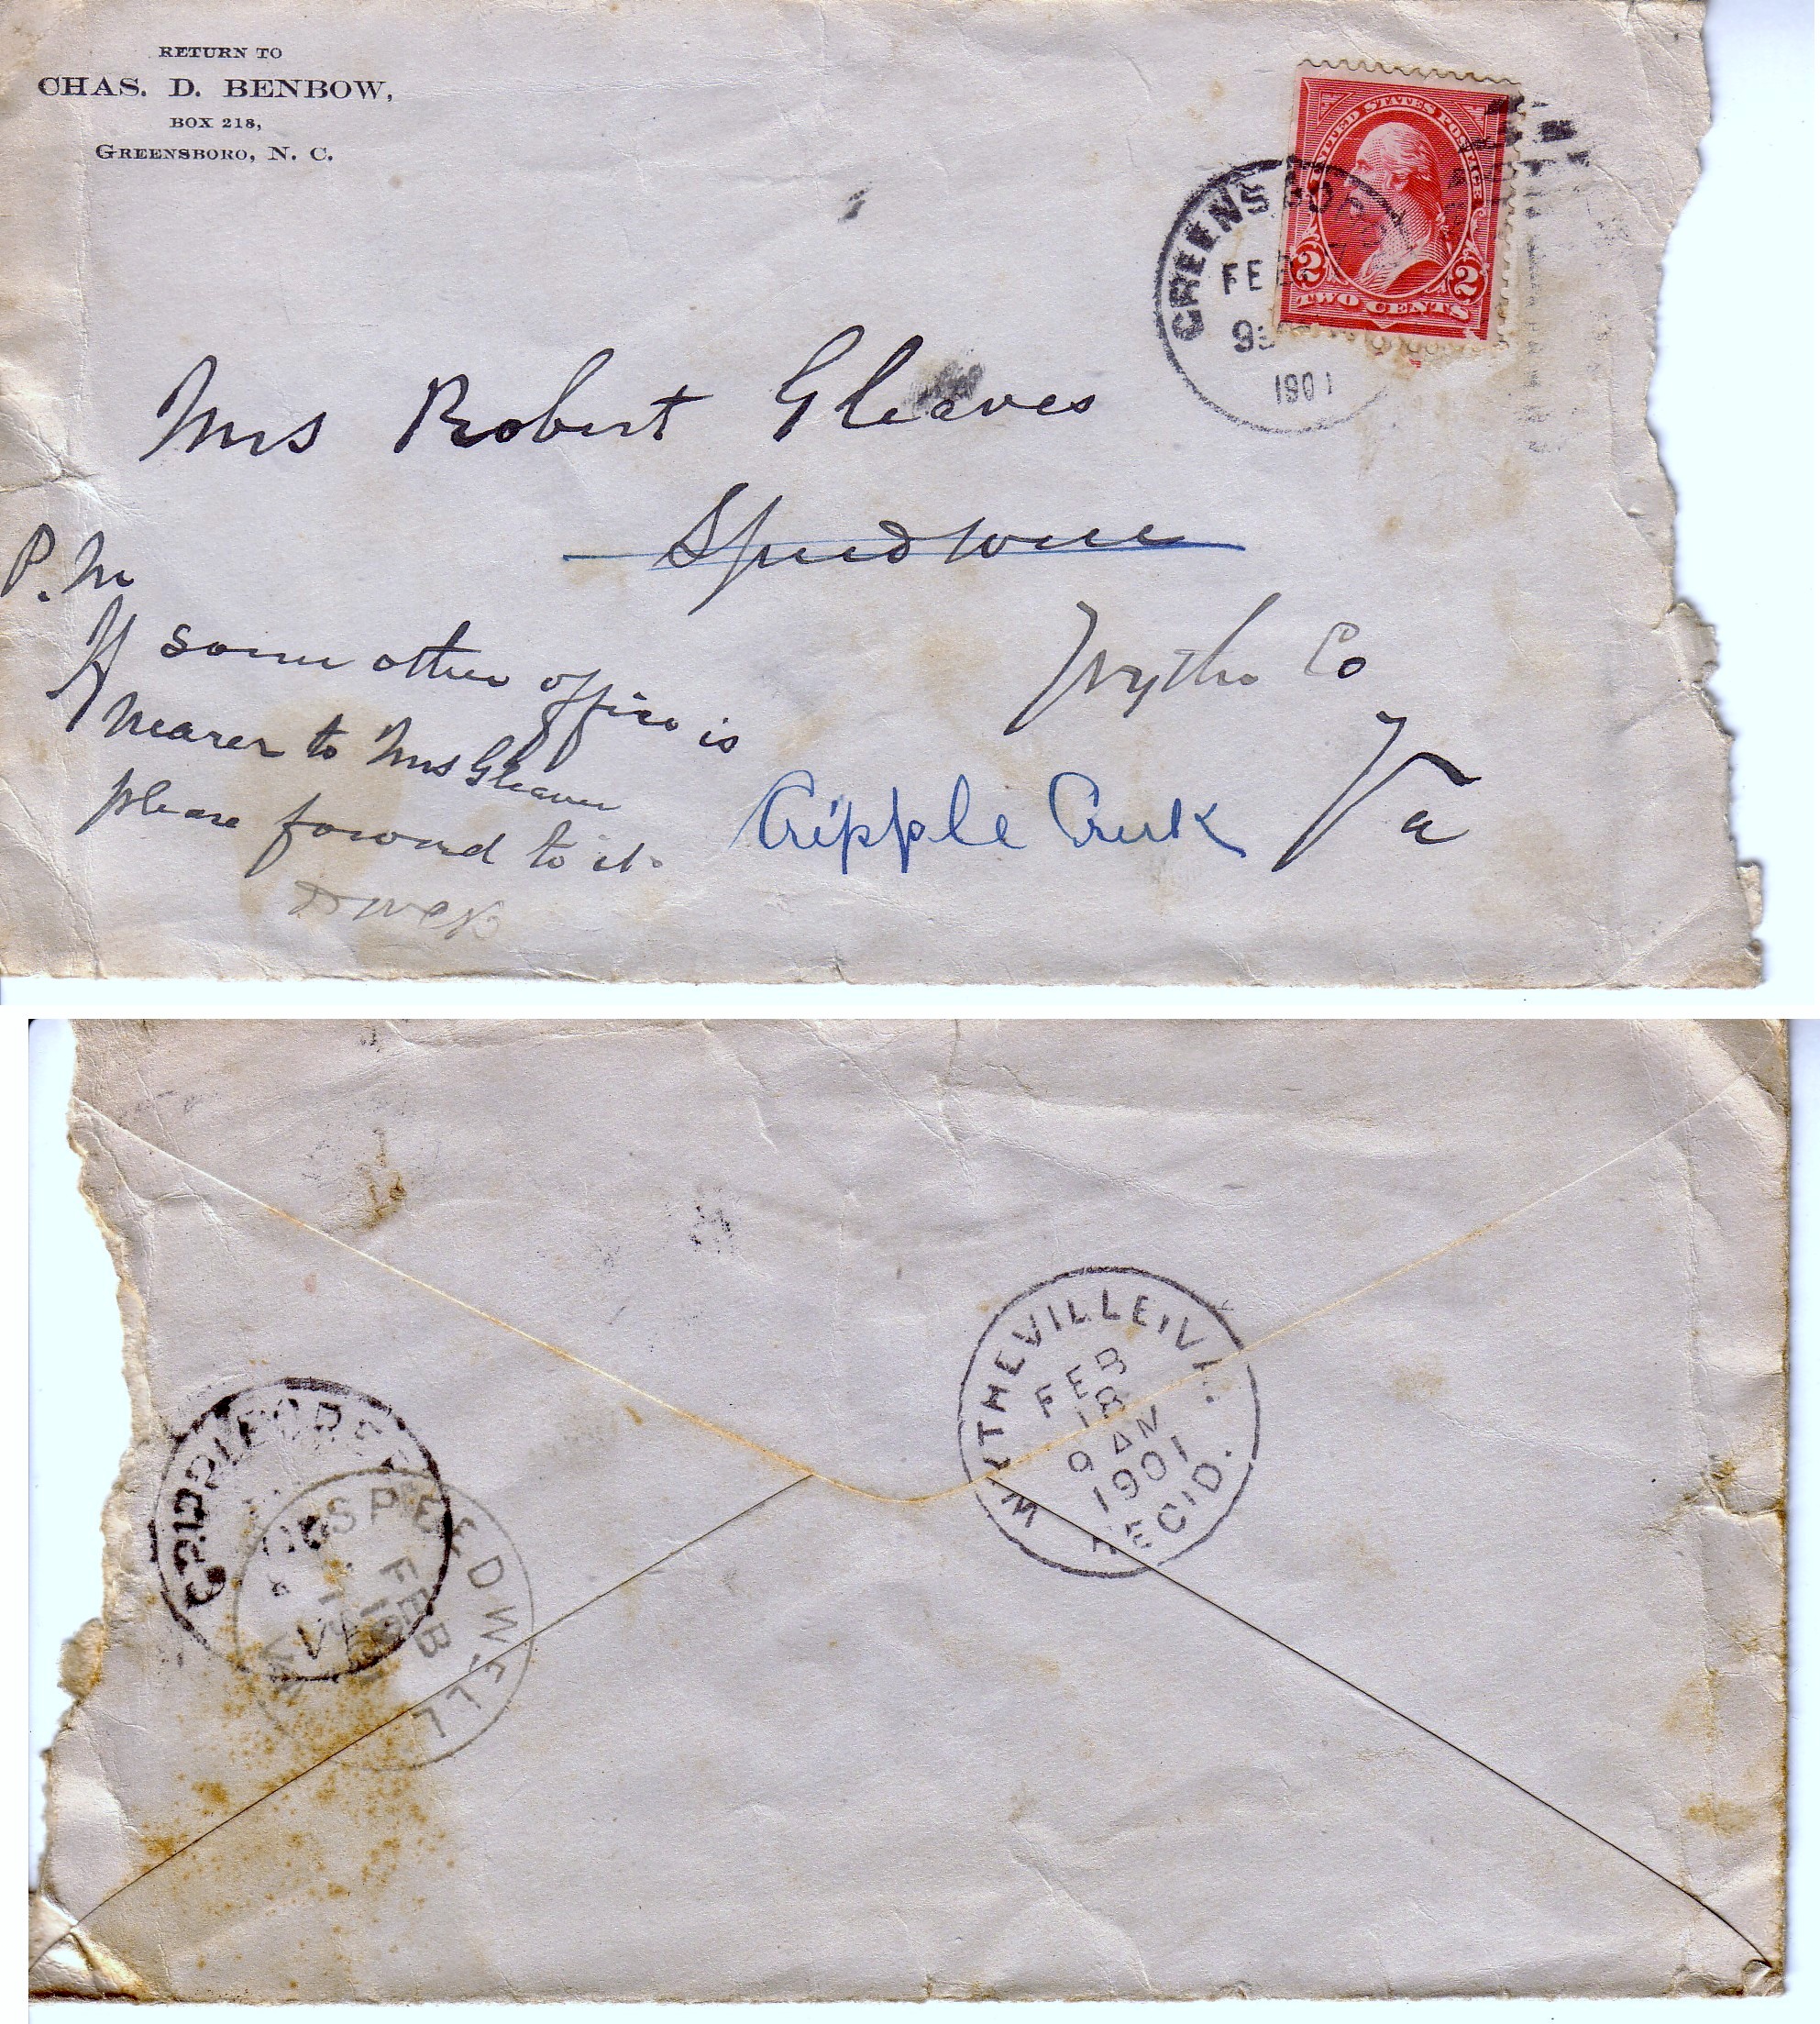 RETURN TO
CHAS. D. BENBOW,
BOX 218,
GREENSBORO, N. C.
UNITED STATES POSTAGE
2 2
TWO CENTS
GREENSBORO
FEB
1901
Mrs Robert Gleaves
Speedwell
Wythe Co
Va
Cripple Creek
P.M
If some other office is
nearer to Mrs Gleaves
please forward to it.
WYTHEVILLE, VA.
FEB
18
9 AM
1901
REC'D.
CRIPPLE CREEK
VA
SPEEDWELL
FEB
VA